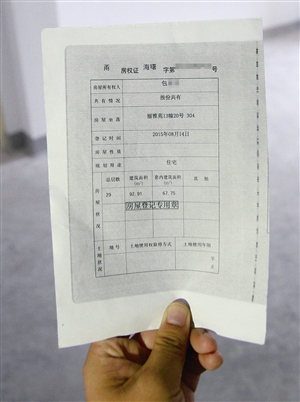 房权证 海曙 字第 号
房屋所有权人 包
共有情况 按份共有
房屋坐落 雅雅苑13幢20号 304
登记时间 2015年08月14日
房屋性质
规划用途 住宅
房屋状况 总层数 建筑面积(m²) 套内建筑面积(m²) 其他
29 92.91 67.75
房屋登记专用章
土地状况 地号 土地使用权取得方式 土地使用年限